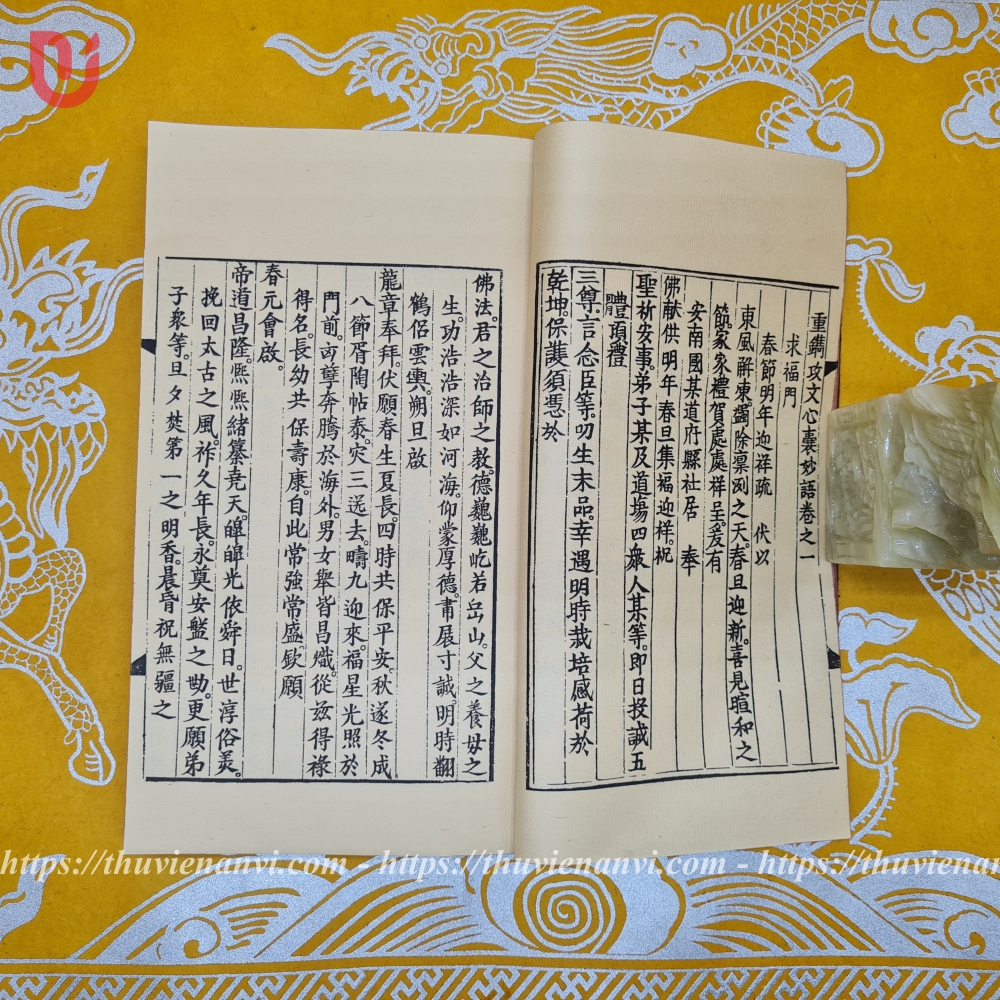 重鐫攻文心囊妙語卷之一
求福門
春節明年迎祥疏 伏以
東風解凍蠲除凛冽之天春旦迎新喜見暄和之
節家家禮賀處處祥呈爰有
安南國某道府縣社居 奉
佛献供明年春旦集福迎样祝
聖祈安事弟子某及道場四衆人某等即日投誠五
體頭禮
三尊言念臣等叨生末品幸遇明時栽培感荷於
乾坤保護須憑於
佛法君之治師之教德巍巍屹若岳山父之養母之
生功浩浩深如河海仰蒙厚德肅展寸誠明時翻
鶴侶雲輿朔旦啟
龍章奉拜伏願春生夏長四時共保平安秋遂冬成
八節胥陶帖泰灾三送去疇九迎來福星光照於
門前孽奔騰於海外男女舉皆昌熾從兹得祿
得名長幼共保壽康自此常強常盛欽願
春元會啟
帝道昌隆熙熙緒纂堯天皥皥光依舜日世淳俗美
挽回太古之風祚久年長永奠安盤之勢更願弟
子衆等旦夕焚第一之明香晨昏祝無疆之
https://thuvienanvi.com - https://thuvienanvi.com - https://thuviena